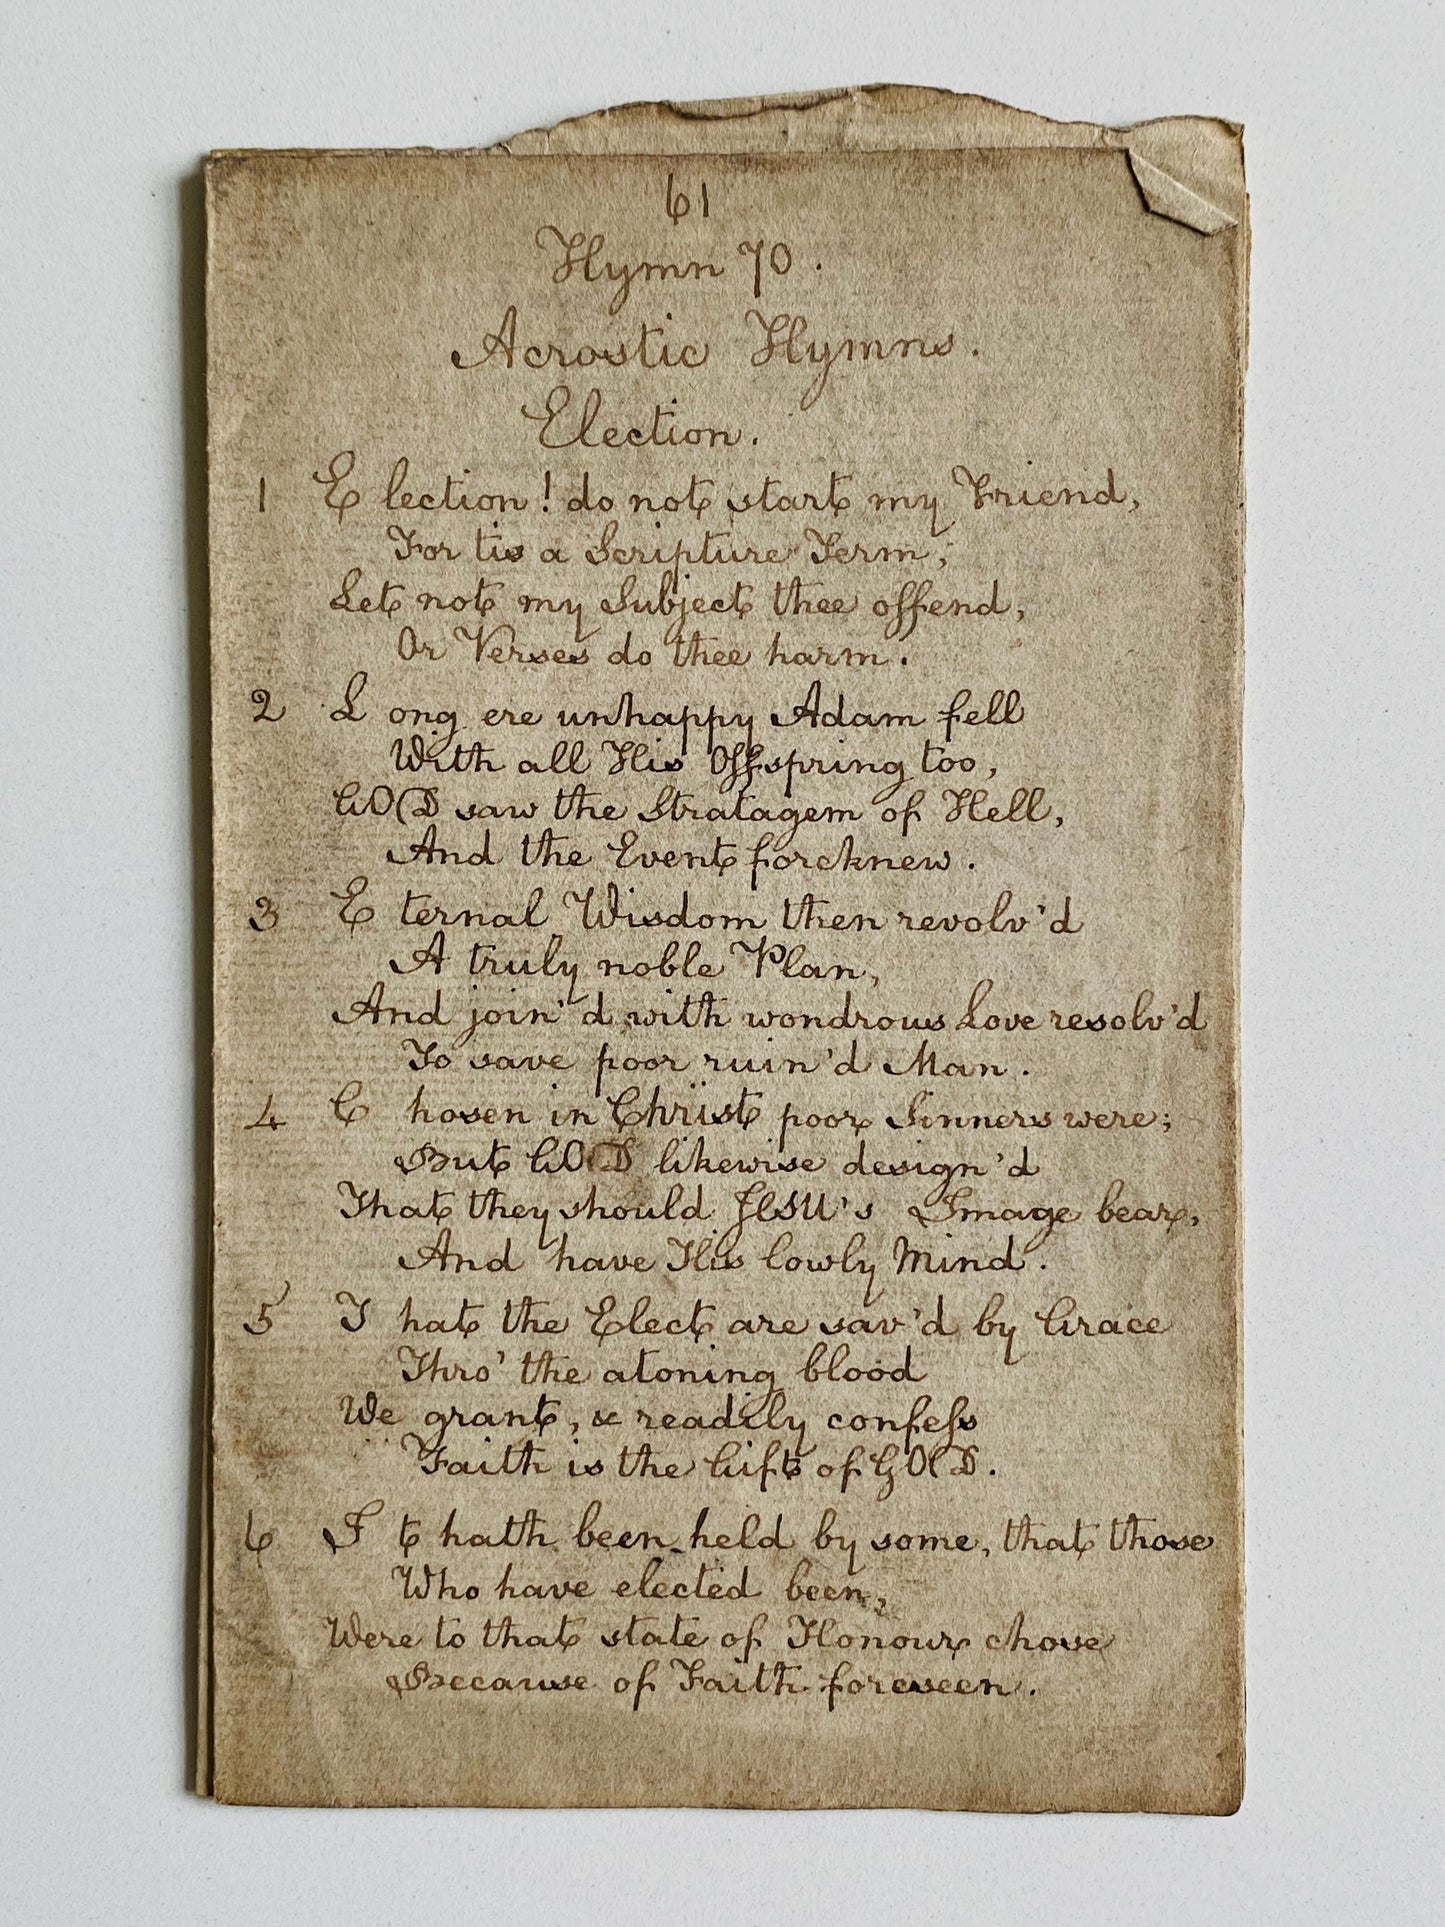 61
Hymn 70.
Acrostic Hymns.
Election.
1 E lection! do not start my Friend,
For tis a Scripture Term;
Let not my Subject thee offend,
Or Verses do thee harm.
2 L ong ere unhappy Adam fell
With all His Offspring too,
GOD saw the Stratagem of Hell,
And the Event foreknew.
3 E ternal Wisdom then revolv'd
A truly noble Plan,
And join'd with wondrous Love resolv'd
To save poor ruin'd Man.
4 C hosen in Christ poor Sinners were;
But GOD likewise design'd
That they should JESU's Image bear,
And have His lowly Mind.
5 T hat the Elect are sav'd by Grace
Thro' the atoning blood
We grant, & readily confeſs
Faith is the Gift of GOD.
6 I t hath been held by some, that those
Who have elected been,
Were to that state of Honour chose
Because of Faith foreseen.